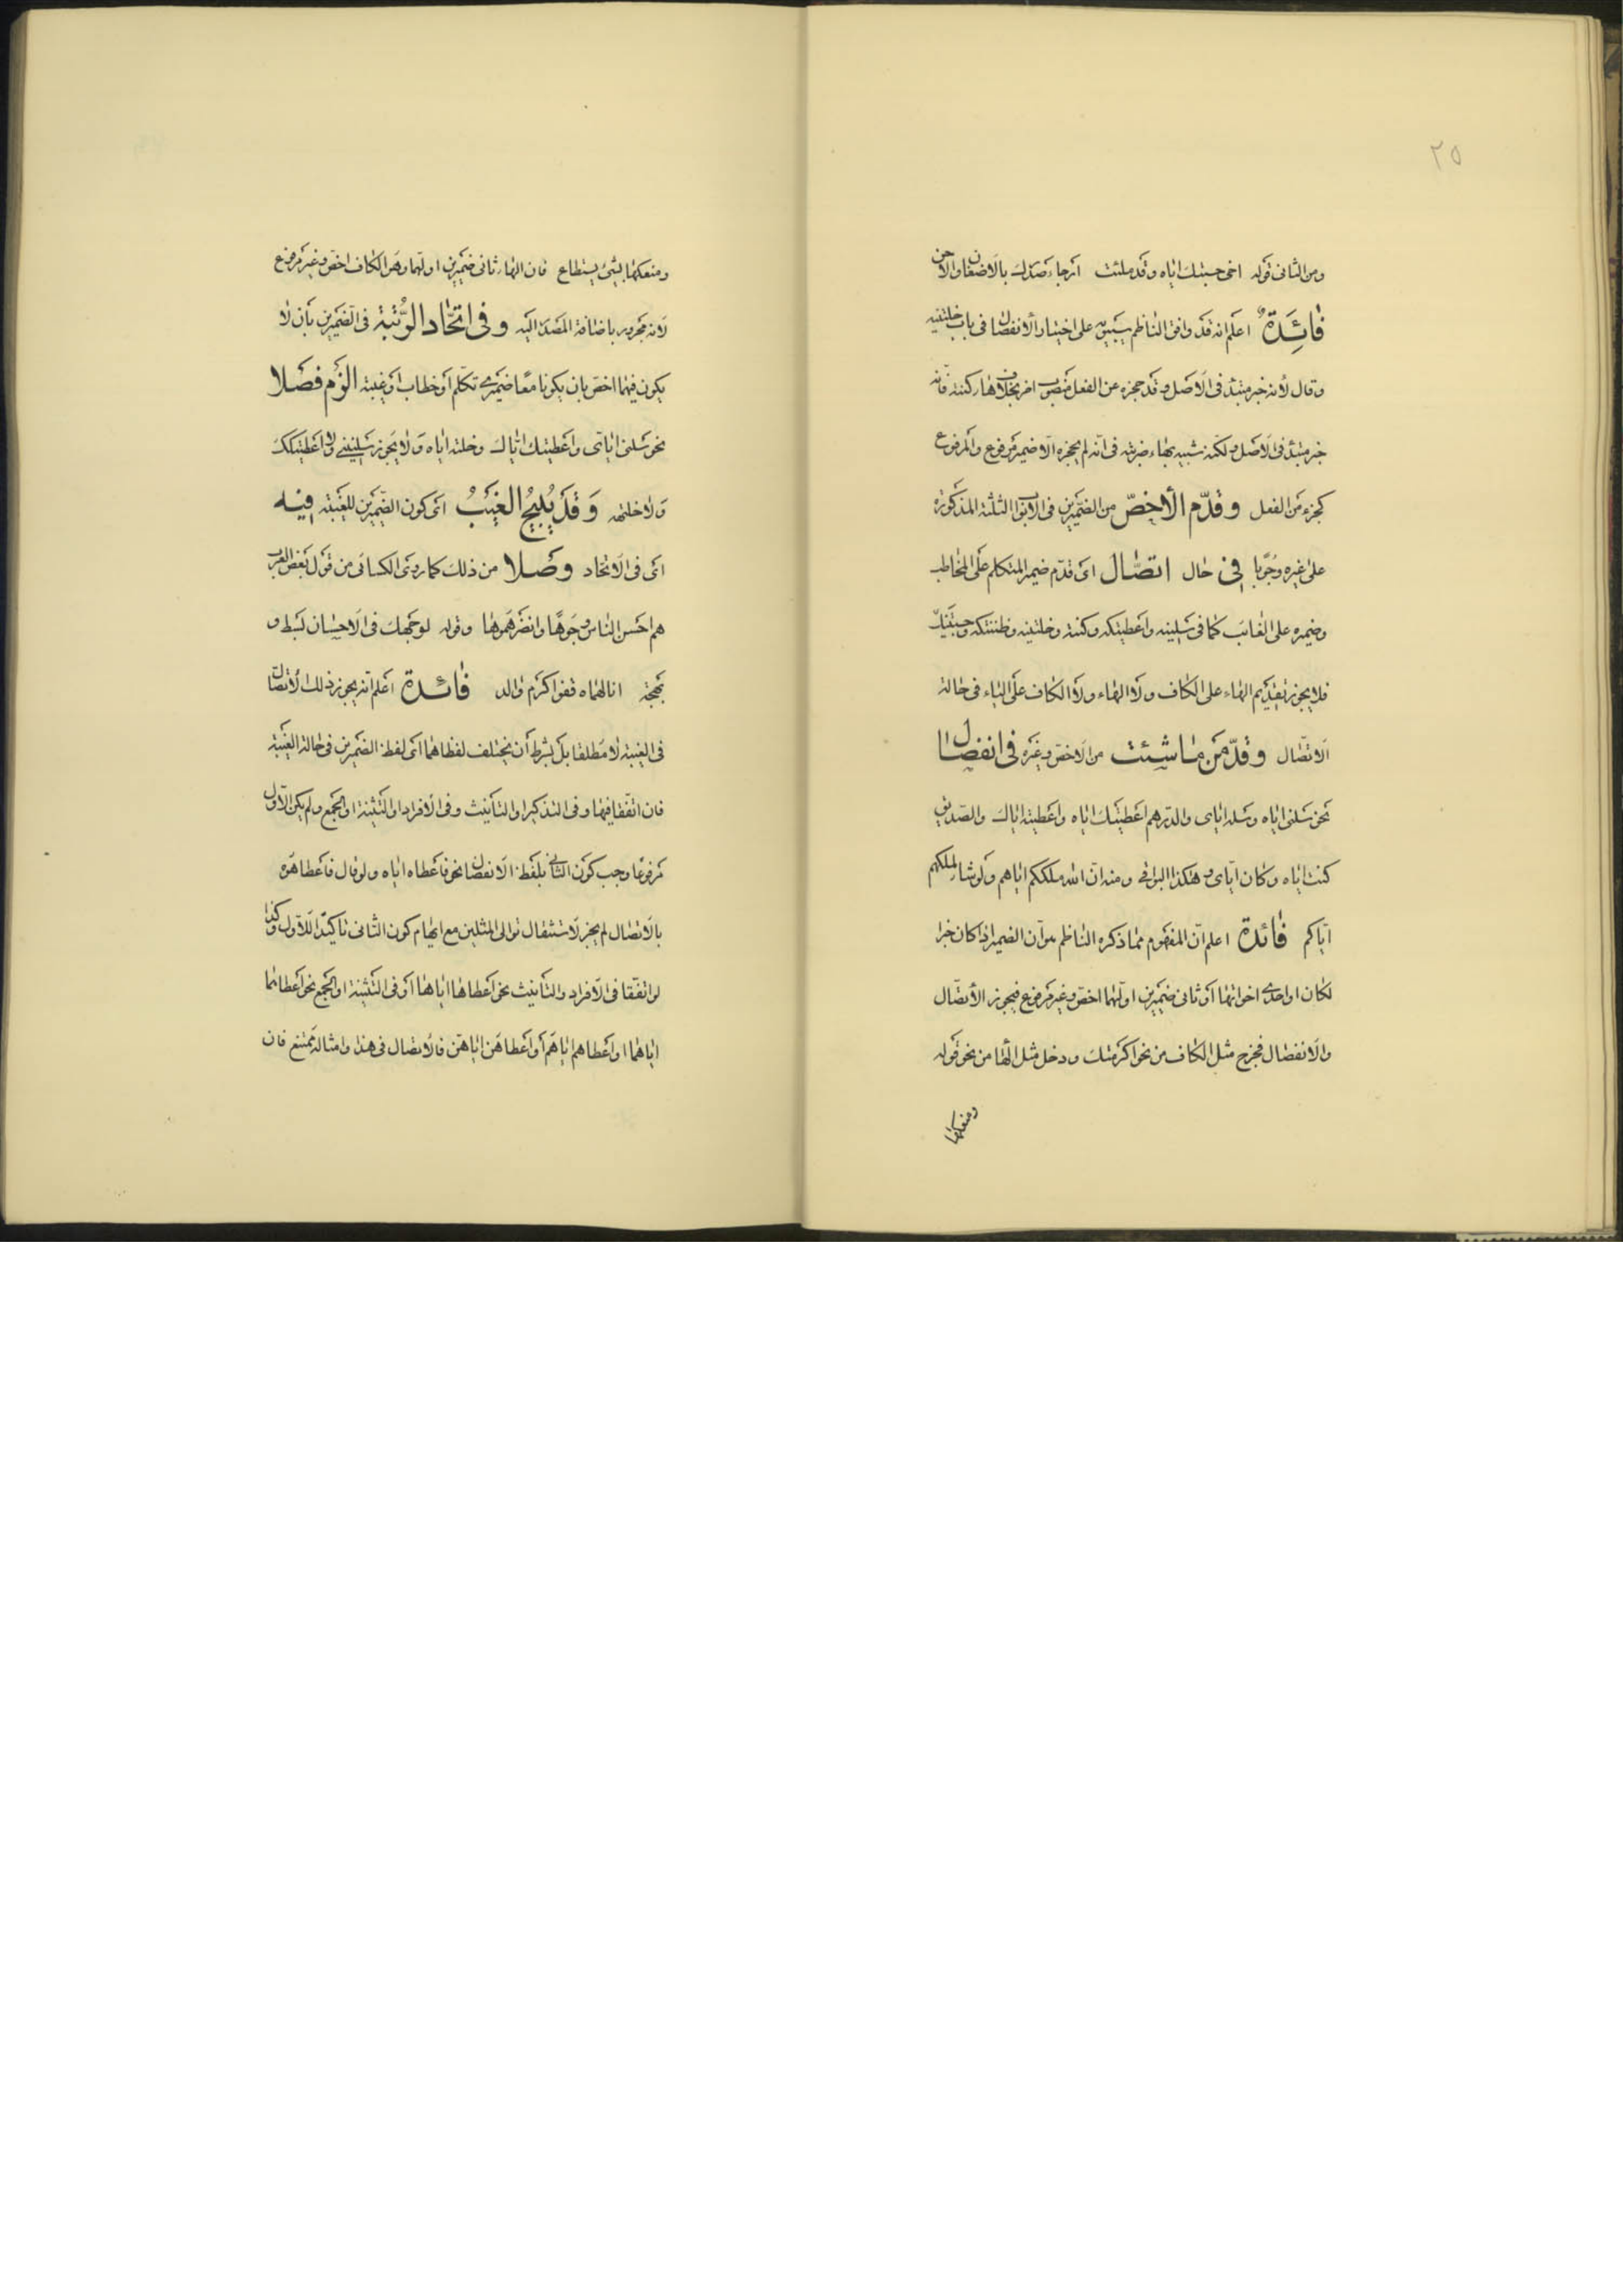 ٢٥
ومن الثانى قوله اخى حسبتك اياه وقد ملئت ارجاء صدرك بالاضغان والاحن
فائدة اعلم انه قد وافق الناظم سيبويه على اختيار الانفصال فى باب خلتنيه
وقال لانه خبر مبتدء فى الاصل وقد حجزه عن الفعل منصوب اخر بخلاف هاء كنته فانه
خبر مبتدء فى الاصل ولكنه شبيه بهاء ضربته فى انه لم يحجزه الا ضمير مرفوع والمرفوع
كجزء من الفعل وقدّم الأخصّ من الضميرين فى الابواب الثلثة المذكورة
على غيره وجوبا فى حال اتصال اى قدّم ضمير المتكلم على المخاطب
وضميره على الغائب كما فى سلنيه واعطيتكه وكنته وخلتنيه وظننتكه وحسبتنيك
فلا يجوز تقديم الهاء على الكاف ولا الهاء ولا الكاف على الياء فى حالة
الاتصال وقدّمن ما شئت من الاخص وغيره فى انفصال
نحو سلنى اياه وسله اياى والدرهم اعطيتك اياه واعطيته اياك والصديق
كنت اياه وكان اياى وهكذا البواقى ومنه ان الله ملككم اياهم ولو شاء لملكهم
اياكم فائدة اعلم ان المفهوم مما ذكره الناظم هو ان الضمير اذا كان خبرا
لكان او احدى اخواتها او ثانى ضميرين اولهما اخص وغير مرفوع فيجوز الاتصال
والانفصال فخرج مثل الكاف من نحو اكرمتك ودخل مثل الها من نحو قوله
ومنعكها
ومنعكها بشىء يستطاع فان الهاء ثانى ضميرين اولهما وهى الكاف اخص وغير مرفوع
لانه مجرور باضافة المصدر اليه وفى اتحاد الرُّتبة فى الضميرين بان لا
يكون فيهما اخص بان يكونا معًا ضميرى تكلم او خطاب او غيبة الزم فصلا
نحو سلنى اياى واعطيتك اياك وخلته اياه ولا يجوز سلنينى ولا اعطيتكك
ولا خلتهه وقد يُبيحُ الغيبُ اى كون الضميرين للغيبة فيه
اى فى الاتحاد وصلا من ذلك كما روى الكسائى من قول بعض العرب
هم احسن الناس وجوها وانضرهموها وقوله لوجهك فى الاحسان بسط و
بهجة انالهماه قفو اكرم والد فائدة اعلم انه يجوز ذلك الاتصال
فى الغيبة لا مطلقا بل بشرط ان يختلف لفظاهما اى لفظ الضميرين فى حالة الغيبة
فان اتفقا فيها وفى التذكير او التأنيث وفى الافراد او التثنية او الجمع ولم يكن الاول
مرفوعا وجب كون الثانى بلفظ الانفصال نحو فاعطاه اياه ولو قال فاعطاهوه
بالاتصال لم يجز لاستثقال توالى المثلين مع ايهام كون الثانى تاكيدا للاول وكذا
لو اتفقا فى الافراد والتانيث نحو اعطاها اياها او فى التثنية او الجمع نحو اعطاهما
اياهما او اعطاهم اياهم او اعطاهن اياهن فالاتصال فى هذا وامثاله ممتنع فان